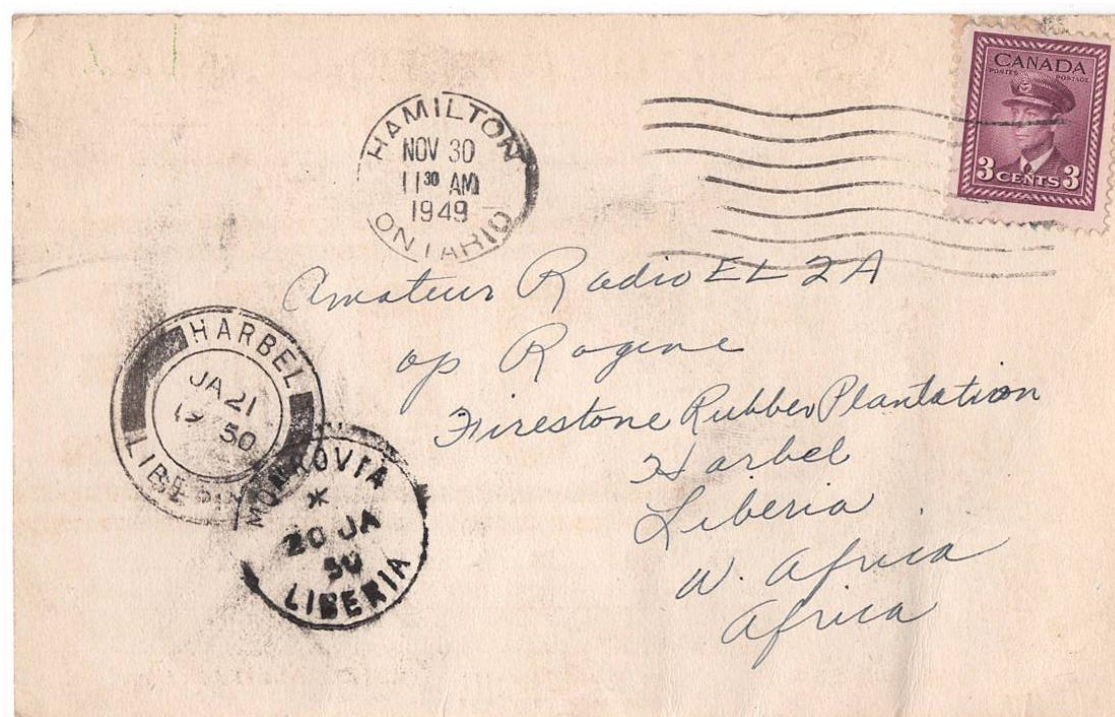 CANADA
POSTES POSTAGE
3 CENTS 3
HAMILTON
NOV 30
11 30 AM
1949
ONTARIO
Amateur Radio EL 2A
op Rogine
Firestone Rubber Plantation
Harbel
Liberia
W. Africa
Africa
HARBEL
JA 21
50
MONROVIA
*
20 JA
50
LIBERIA